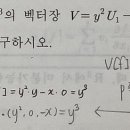 ³의 벡터장 V=y²U₁-
구하시오.
V[f]
]=y²·y-x·0=y³
p³
·(y²,0,-x)=y³ ←